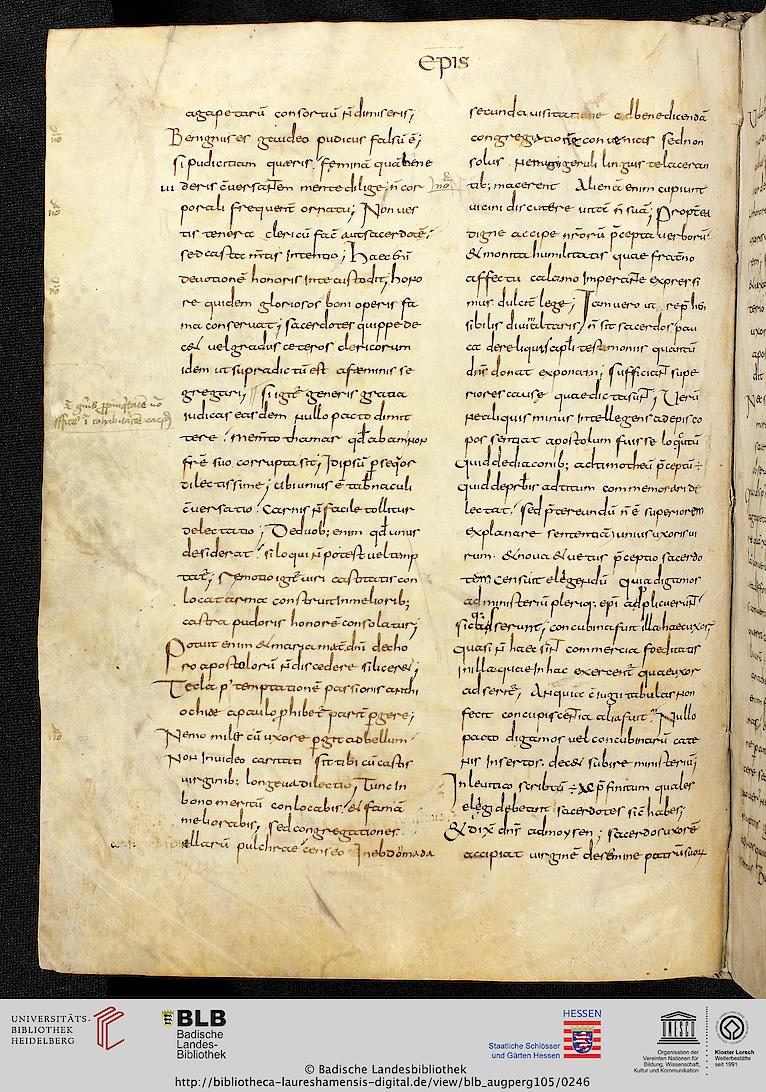 Epis
agapetarū consortiū ñ dimiseris;
Benignus es gaudeo pudicus falsū ē;
si pudicitiam quæris, feminā quā bene
deris c̄uersantem mente dilige; ñ cor
porali frequent̄ ornatu; Non ves
tis tenera clericū fac̄ aut sacerdotē;
sed casta m̄tis intentio; Haec
deuotionē honoris inte custodit; hono
re quidem gloriosos boni operis fa
ma conseruat; sacerdotes quippe de
cet vel gradus ceteros clericorum
idem ut supradictū est a feminis se
gregari; si igit̄ generis gratia
iudicas easdem nullo pacto dimit
tere; mem̄to thamar qd̄ ab amnon
fr̄e suo corrupta sit; Idipsū p̄sequor
dilectissime; ubi unius ē tab̄naculi
c̄uersatio. Carnis ñ facile tollitur
delectatio; De duob; enim qd̄ unus
desiderat si loqui ñ potest vel temp
tat̄; remotio igit̄ viri castitatis con
locat arma construit in meliorib;
castra pudoris honorē consolatur;
Potuit enim & maria mat̄ dn̄i de cho
ro apostolorū ñ discedere si licer&;
Tecla p' temptationē passionis anthi
ochiae a paulo p̄hibet̄ parit̄ p̄gere;
Nemo mil& cū uxore p̄git ad bellum
Non inuideo caritati sit tibi cū castis
virginib; longeua dilectio; Tunc in
bono meritū conlocabis, & famā
meliorabis, sed congregationes
ellarū pulchrae censeo Inebdomada
secunda visitatione ad benedicendā
congregationē conuenias sed non
solus. ne nugigeruli linguis te laceran
tib; macerent Alienā enim cupiunt
vicini discutere uitā ñ suā; Propter
digne accipe nr̄orū p̄cepta verborū
& monita humilitatis quae fraterno
affectu calamo imperante expressi
mus dulcit̄ lege; Iam vero ut repħs
sibilis diuinis altaris, ñ sit sacerdos pau
ca de reliquis apl̄i testimoniis quantū
dn̄s donat exponam; sufficiant supe
riores cause quae dicta sunt; Verū
ne aliquis minus intellegens ad episco
pos sentiat apostolum fuisse locutū
Quid de diaconib; ad timotheū p̄ceptū ÷
Quid de prb̄is ad titum commemorari de
lectat. sed p̄tereundū ñ ē superiorem
explanare sententiā unius uxoris ui
rum. & noua & uetus p̄ceptio sacerdo
tem censuit elegendū quia digamos
ad ministeriū pleriq; epī adplicuerunt
sic adserunt; concubina fuit illa haec uxor;
quasi ñ haec sint commercia foeditatis
in illa quae in hac exercent̄ quae uxor
adserit̄; At qui c̄iugii tabulas non
fecit concupiscentia alia fuit? Nullo
pacto digamos vel concubinarū cate
nis insertos. dec& subire ministeriū;
In leuitico scribtū ÷ & p̄finitum quales
elegi debeant sacerdotes sic̄ habes;
& dix̄ dn̄s ad moysen; sacerdos uxorē
accipiat virginē de semine patrū suorū
UNIVERSITÄTS-
BIBLIOTHEK
HEIDELBERG
BLB
Badische
Landes-
Bibliothek
HESSEN
Staatliche Schlösser
und Gärten Hessen
UNESCO
Organisation der
Vereinten Nationen für
Bildung, Wissenschaft,
Kultur und Kommunikation
Kloster Lorsch
Welterbestätte
seit 1991
© Badische Landesbibliothek
http://bibliotheca-laureshamensis-digital.de/view/blb_augperg105/0246